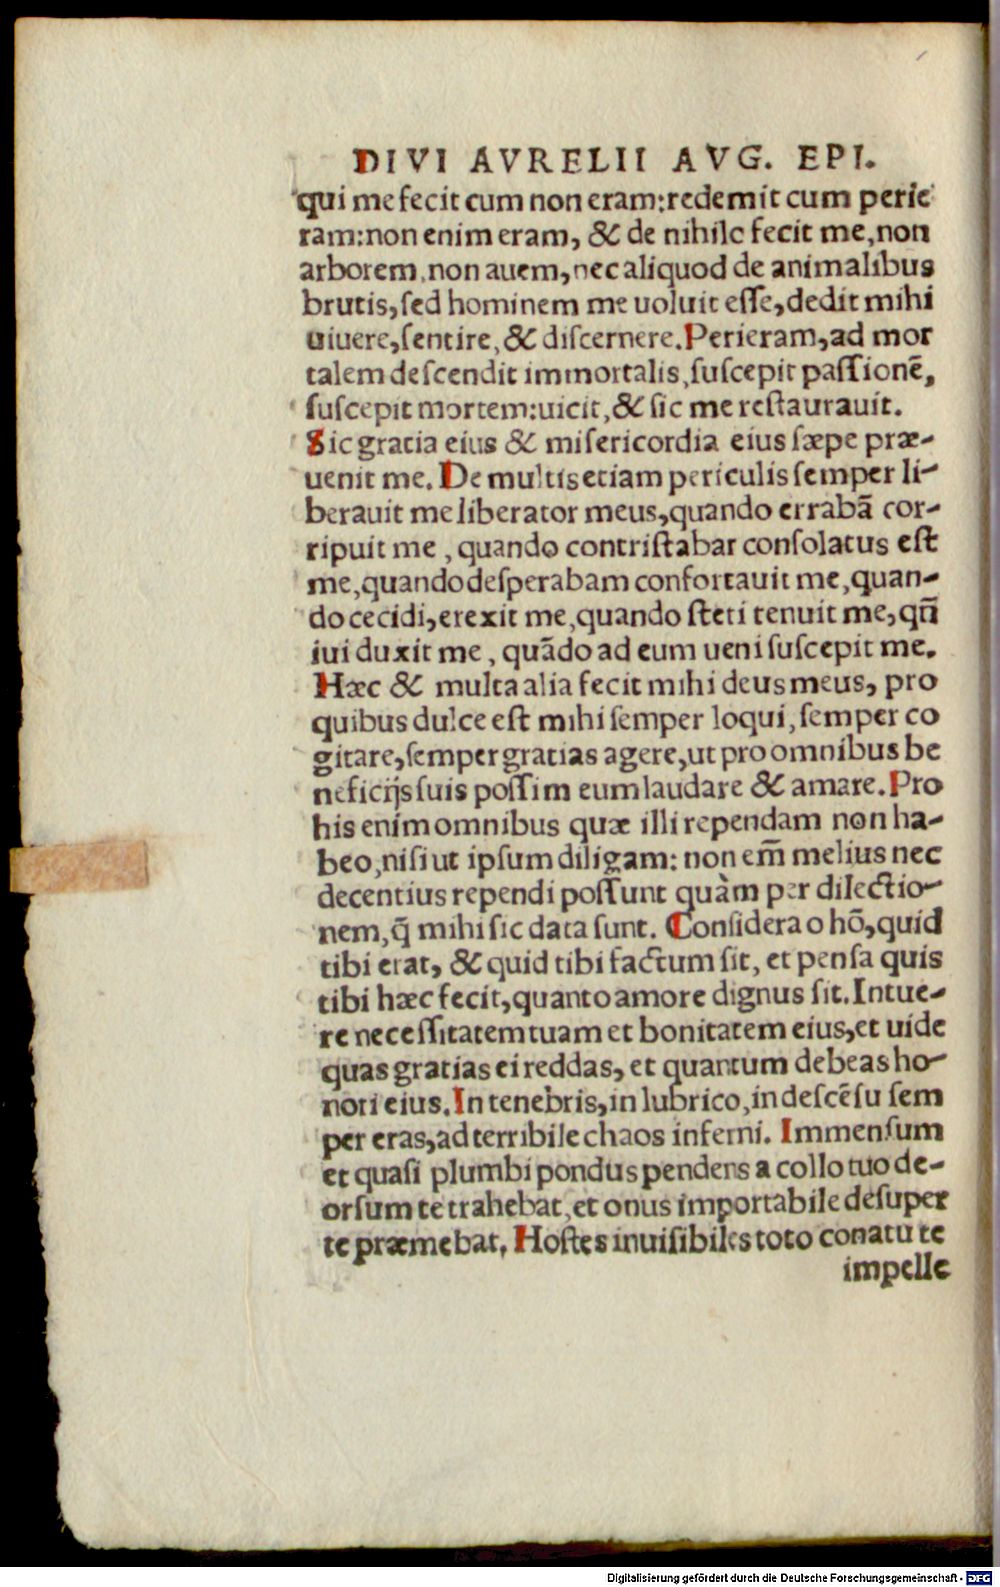 DIVI AVRELII AVG. EPI.
qui me fecit cum non eram: redemit cum perie
ram: non enim eram, & de nihilo fecit me, non
arborem, non auem, nec aliquod de animalibus
brutis, sed hominem me uoluit esse, dedit mihi
uiuere, sentire, & discernere. Perieram, ad mor
talem descendit immortalis, suscepit passionē,
suscepit mortem: uicit, & sic me restaurauit.
Sic gratia eius & misericordia eius sæpe præ-
uenit me. De multis etiam periculis semper li-
berauit me liberator meus, quando errabā cor-
ripuit me, quando contristabar consolatus est
me, quando desperabam confortauit me, quan-
do cecidi, erexit me, quando steti tenuit me, qñ
iui duxit me, quādo ad eum ueni suscepit me.
Hæc & multa alia fecit mihi deus meus, pro
quibus dulce est mihi semper loqui, semper co
gitare, semper gratias agere, ut pro omnibus be
neficijs suis possim eum laudare & amare. Pro
his enim omnibus quæ illi rependam non ha-
beo, nisi ut ipsum diligam: non em̄ melius nec
decentius rependi possunt quàm per dilectio-
nem, q̄ mihi sic data sunt. Considera o hō, quid
tibi erat, & quid tibi factum sit, et pensa quis
tibi hæc fecit, quanto amore dignus sit. Intue-
re necessitatem tuam et bonitatem eius, et uide
quas gratias ei reddas, et quantum debeas ho-
nori eius. In tenebris, in lubrico, in descēsu sem
per eras, ad terribile chaos inferni. Immensum
et quasi plumbi pondus pendens a collo tuo de-
orsum te trahebat, et onus importabile desuper
te præmebat, Hostes inuisibiles toto conatu te
impelle
Digitalisierung gefördert durch die Deutsche Forschungsgemeinschaft - DFG